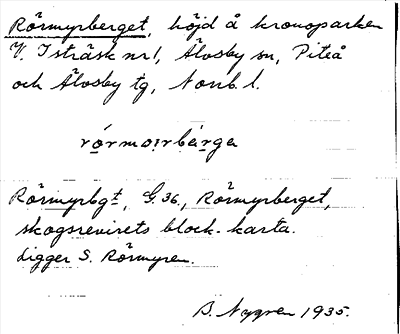 Rörmyrberget, höjd å kronoparken
V. Isträsk nr 1, Älvsby sn, Piteå
och Älvsby tg, Norrb. l.
rö̀rmo̩rbàrga
Rörmyrbgt, G. 36, Rörmyrberget,
skogsrevirets block-karta.
Ligger S. Rörmyren.
B. Nygren 1935.